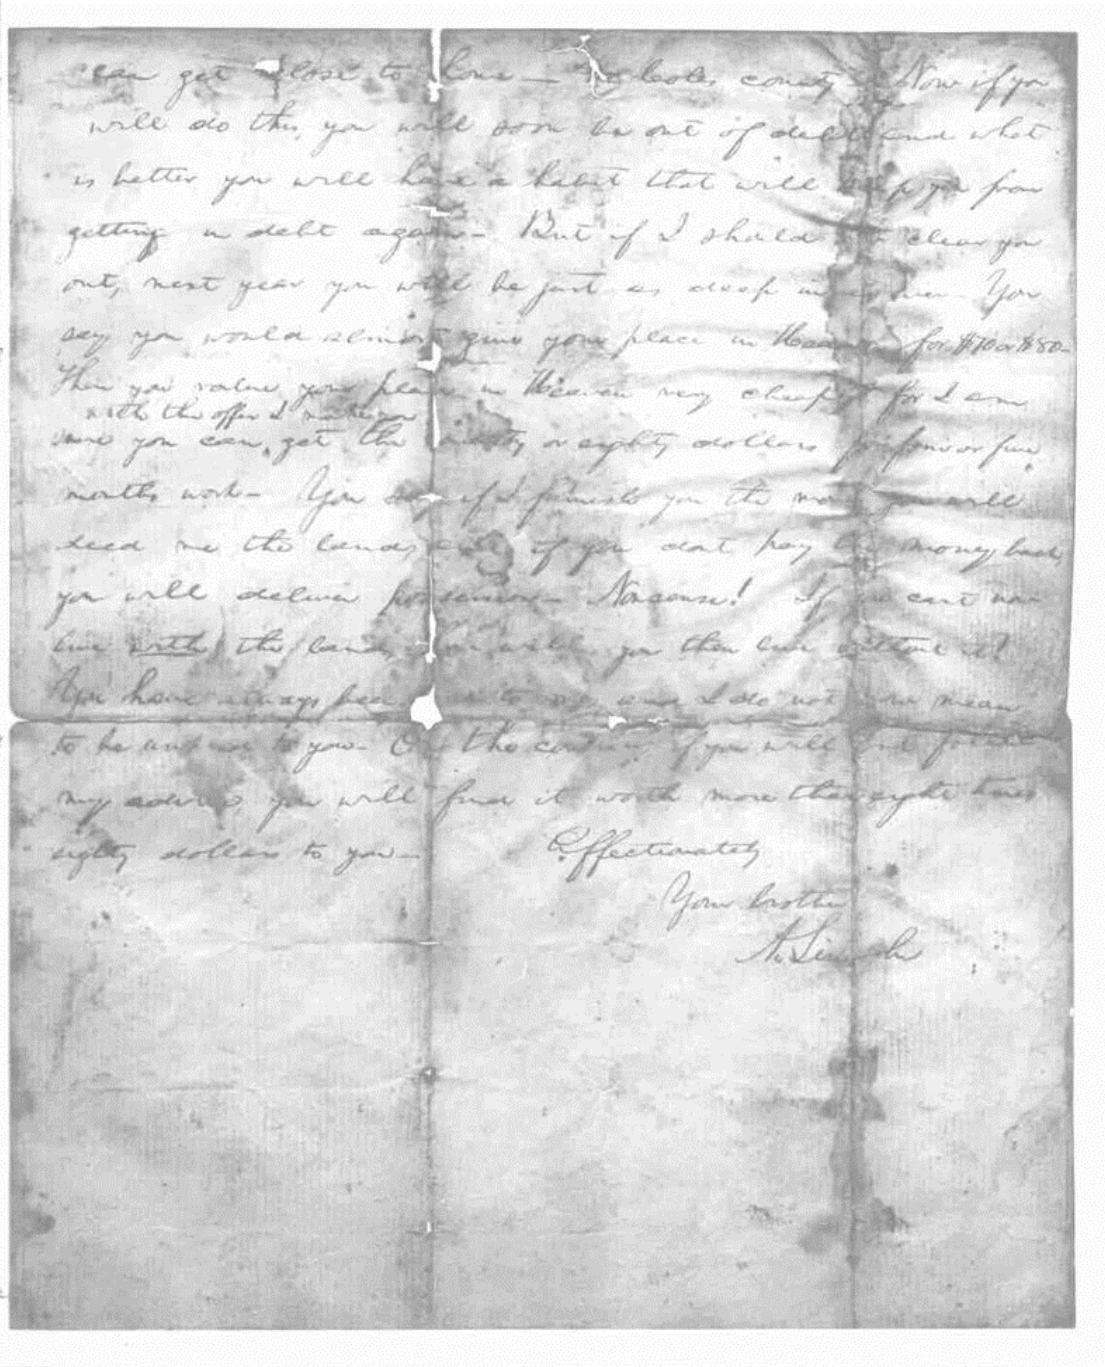 can get close to home — Coles county — Now if you
will do this, you will soon be out of debt and what
is better you will have a habit that will keep you from
getting in debt again — But if I should clear you
out, next year you will be just as deep in as ever — You
say you would almost give your place in Heaven for $70 or $80 —
Then you value your place in Heaven very cheaply for I am
with the offer I make you
sure you can get the seventy or eighty dollars for four or five
months work — You say if I furnish you the money you will
deed me the land, and if you dont pay the money back,
you will deliver possession — Nonsense! If you cant now
live with the land, how will you then live without it?
You have always been to me, and I do not now mean
to be unkind to you — On the contrary, if you will but follow
my advice, you will find it worth more than eight times
eighty dollars to you —
Affectionately
Your brother
A. Lincoln